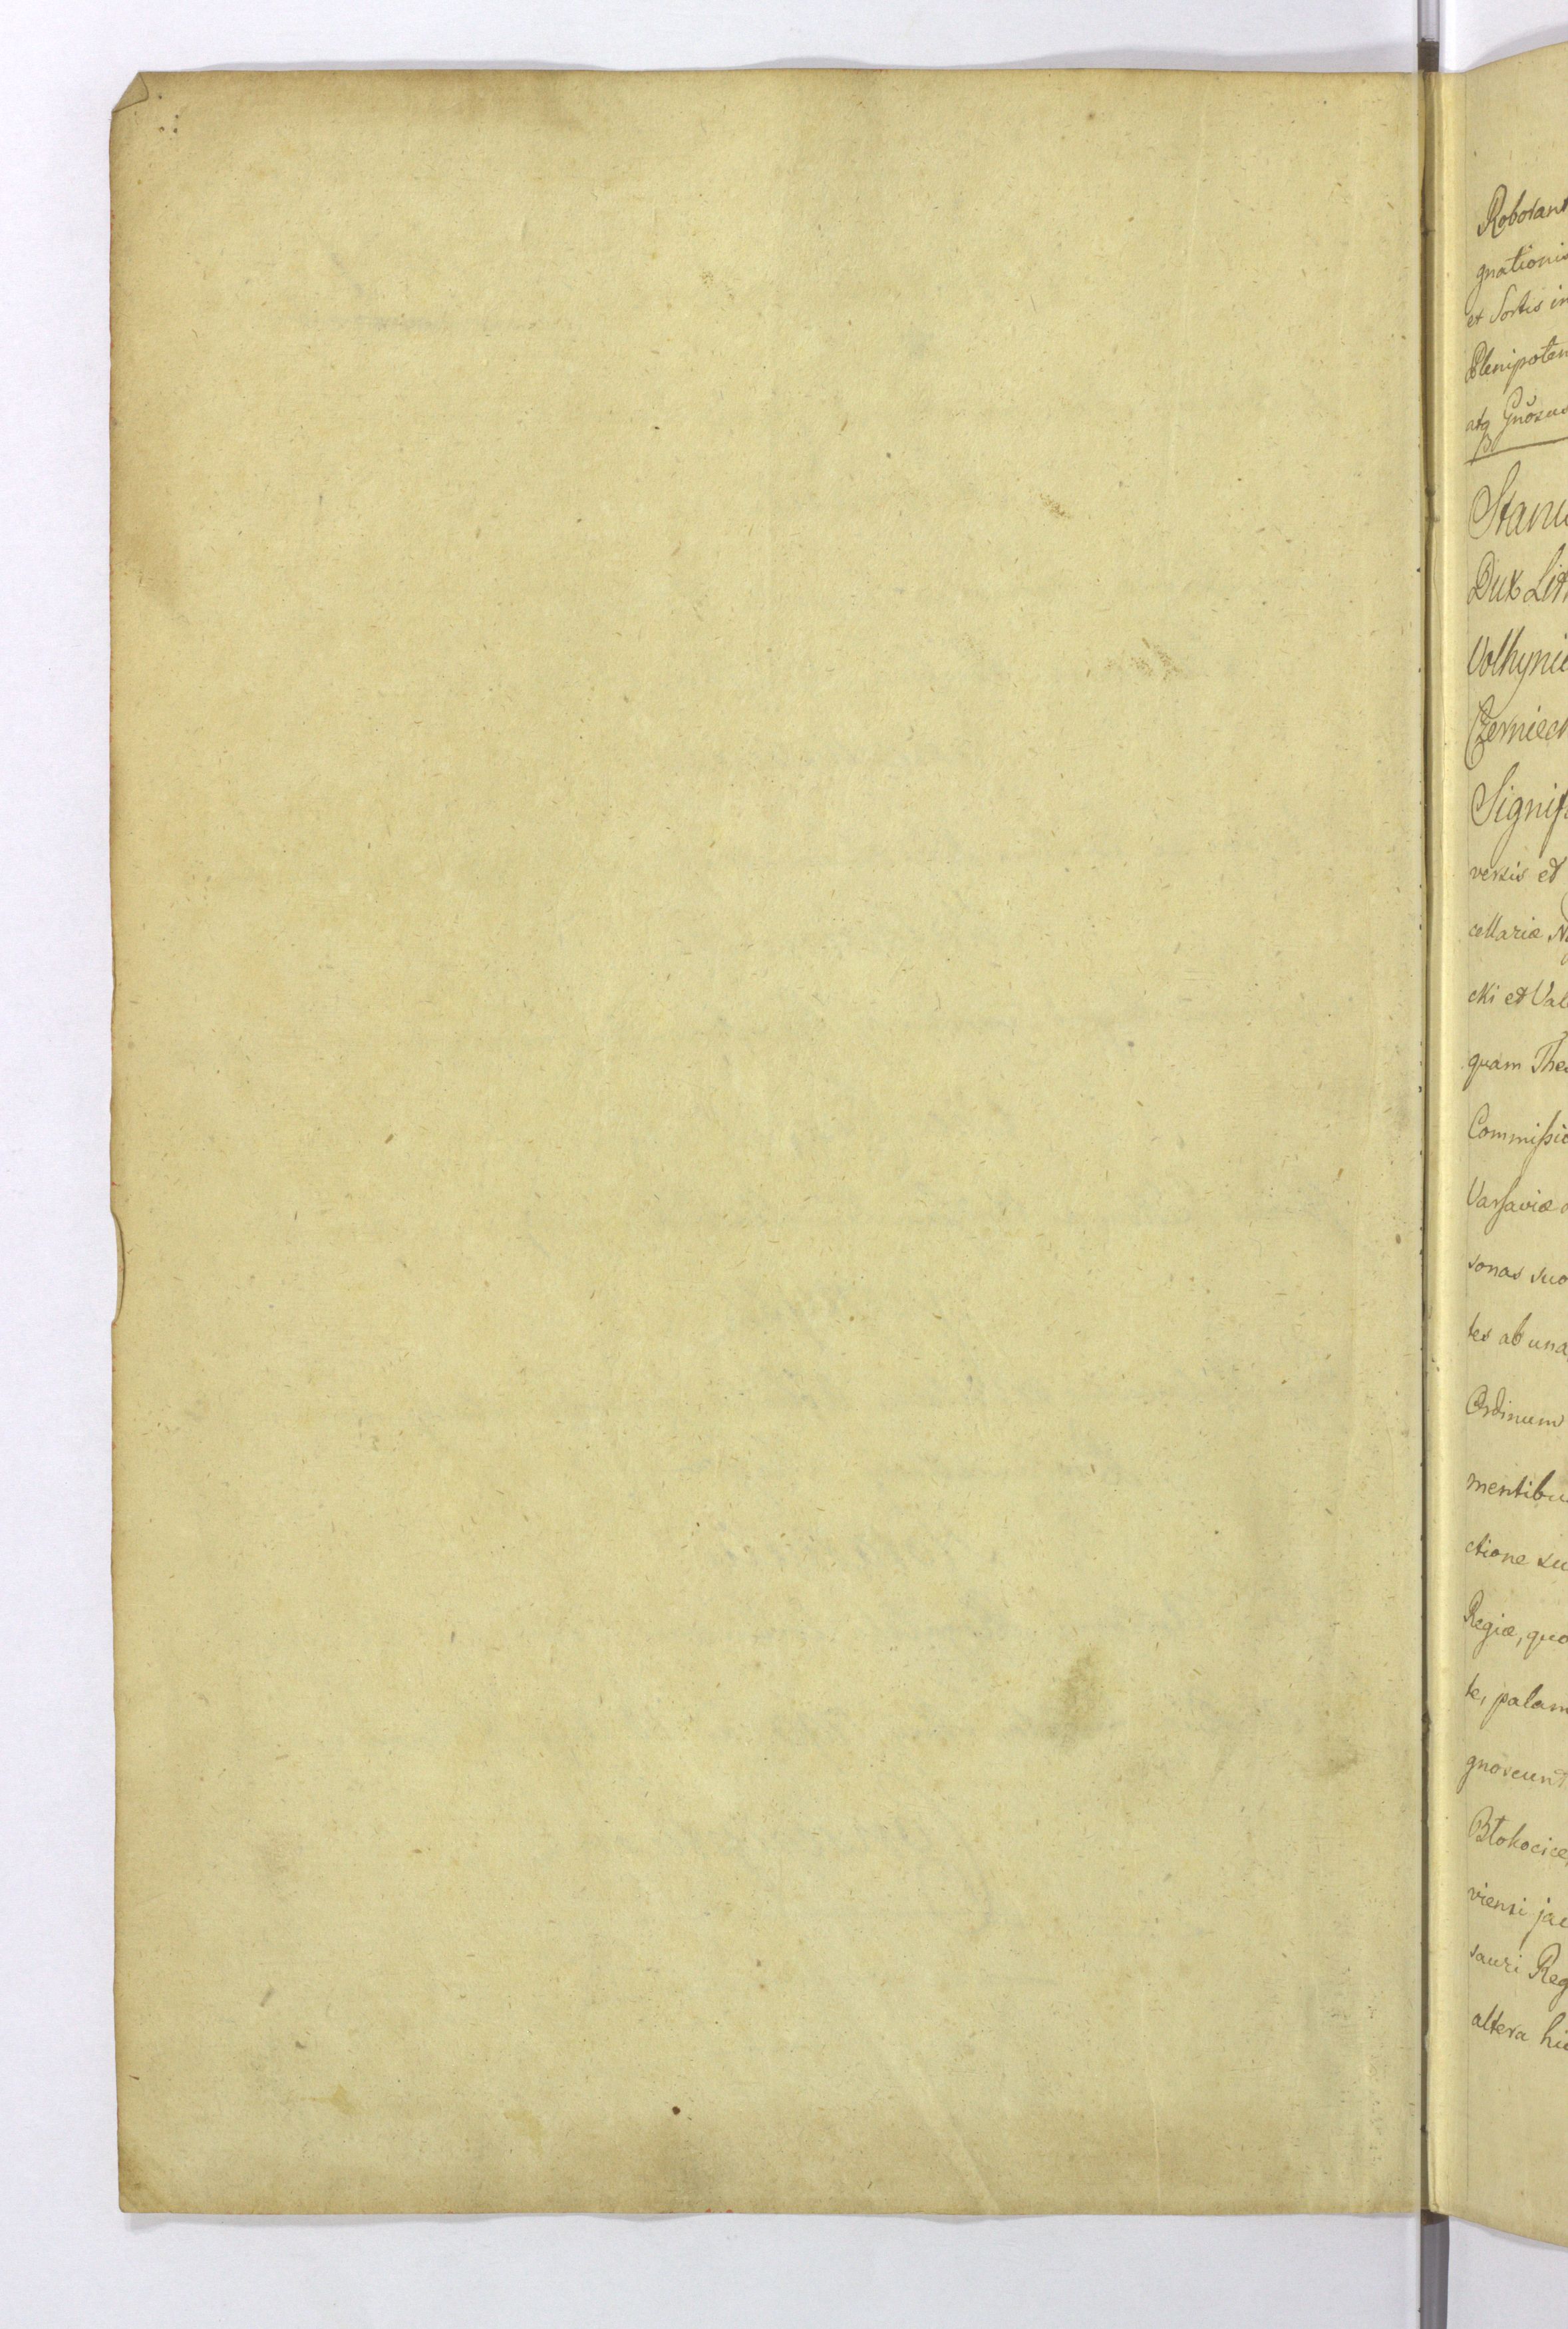 Roborant
gnationis
et Sortis in
Plenipoten
atq Gnõsus
Stanis
Dux Lith
Volhynie
Czerniech
Signif
versis et
cellariæ No
cki et Val
quam The
Commissio
Varsaviæ
sonas suo
tes ab una
Ordinum
mentibus
ctione su
Regiæ, quo
te, palam
gnoscunt
Błokocice,
viensi jac
sauri Reg
altera hic